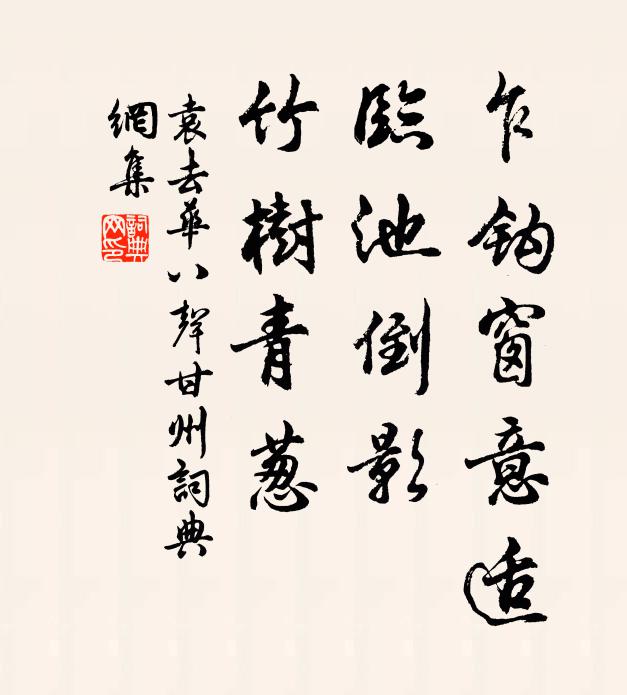 乍鈎窗意适
臨池倒影
竹樹青葱
袁去華八聲甘州詞典
網集
詞典網印